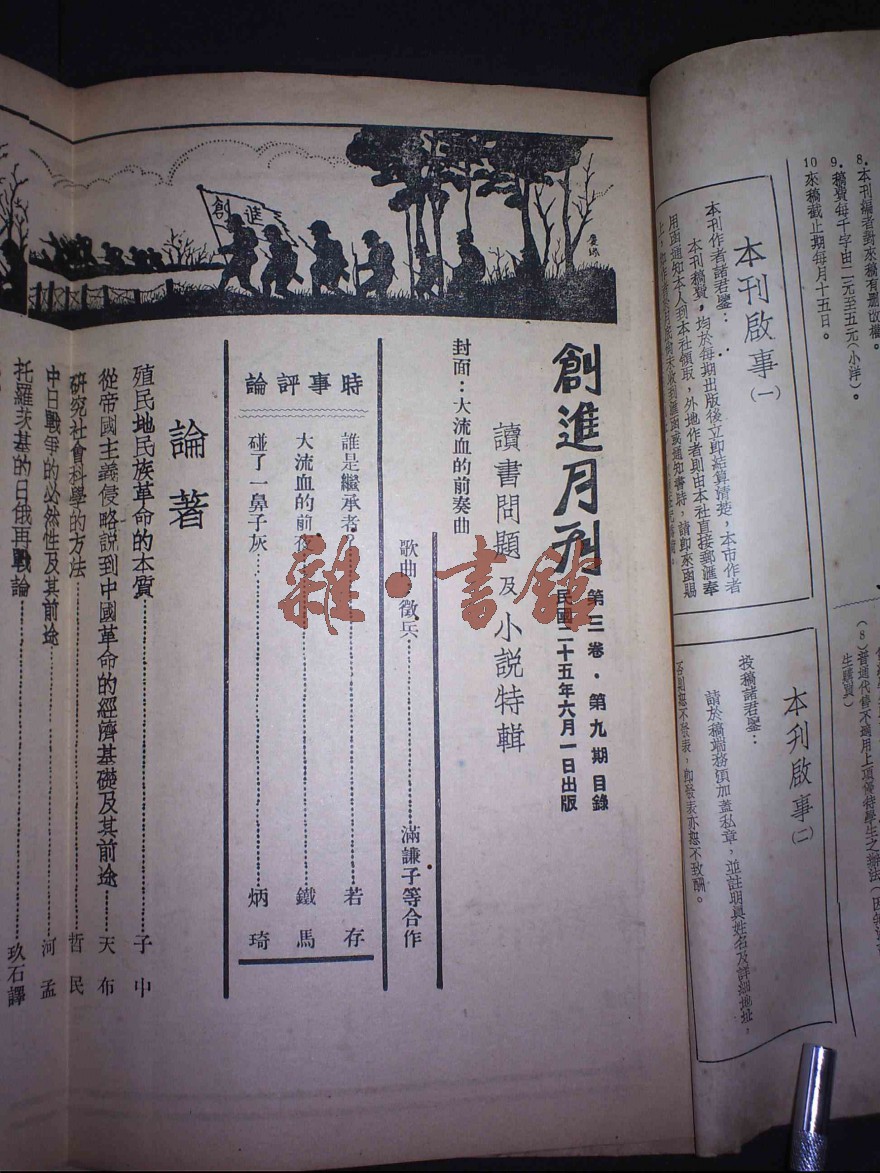 8．本刊編者對來稿有刪改權。
9．稿費每千字由二元至五元(小洋)。
10來稿截止期每月十五日。
本刊啟事(一)
本刊作者諸君鑒：
本刊稿費，均於每期出版後立即結算清楚，本市作者
用函通知本人到本社領取，外地作者則由本社直接郵滙奉
本刊啟事(二)
投稿諸君鑒：
請於稿端務須加蓋私章，並註明眞姓名及詳細地址，
否則恕不發表，卽發表亦恕不致酬。
創進
創進月刊
第三卷．第九期目錄
民國二十五年六月一日出版
讀書問題及小說特輯
封面：大流血的前奏曲
歌曲：徵兵 滿謙子等合作
時事評論
誰是繼承者？ 若存
大流血的前夜 鐵馬
碰了一鼻子灰 炳琦
論著
殖民地民族革命的本質 子中
從帝國主義侵略說到中國革命的經濟基礎及其前途 天布
研究社會科學的方法 哲民
中日戰爭的必然性及其前途 河孟
托羅茨基的日俄再戰論 玖石譯
雜·書館